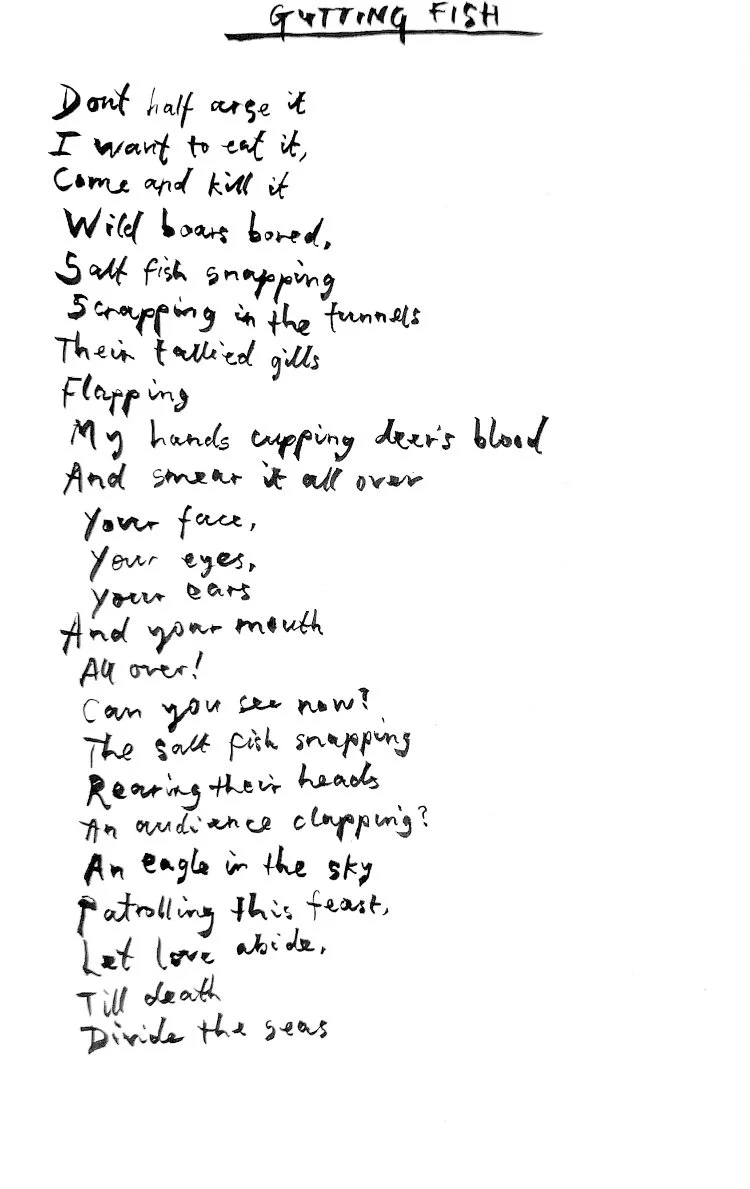 GUTTING FISH
Dont half arse it
I want to eat it,
Come and kill it
Wild boars bored,
Salt fish snapping
Scrapping in the tunnels
Their tallied gills
Flapping
My hands cupping deer's blood
And smear it all over
Your face,
Your eyes,
Your ears
And your mouth
All over!
Can you see now?
The salt fish snapping
Rearing their heads
An audience clapping?
An eagle in the sky
Patrolling this feast,
Let love abide,
Till death
Divide the seas